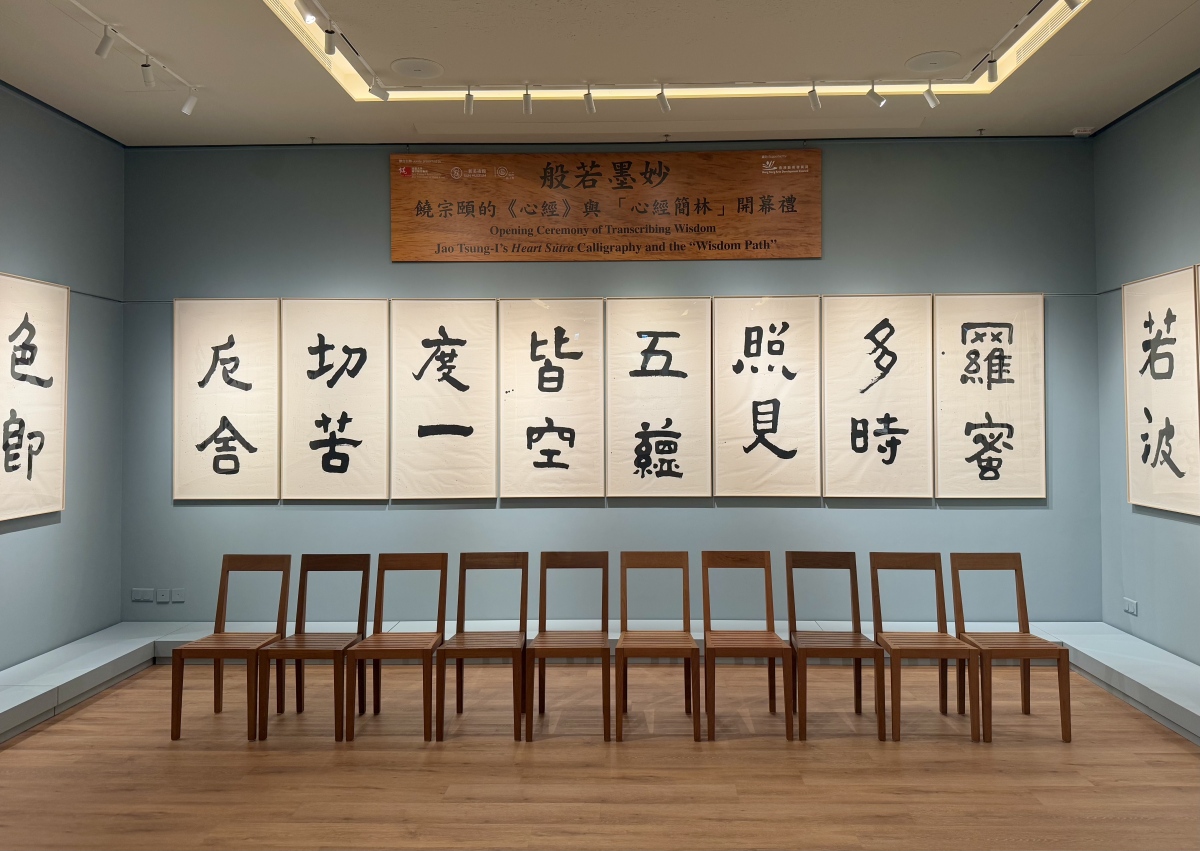 般若墨妙
饒宗頤的《心經》與「心經簡林」開幕禮
Opening Ceremony of Transcribing Wisdom
Jao Tsung-I's Heart Sūtra Calligraphy and the “Wisdom Path”
若波
羅蜜
多時
照見
五蘊
皆空
度一
切苦
厄舍
色即